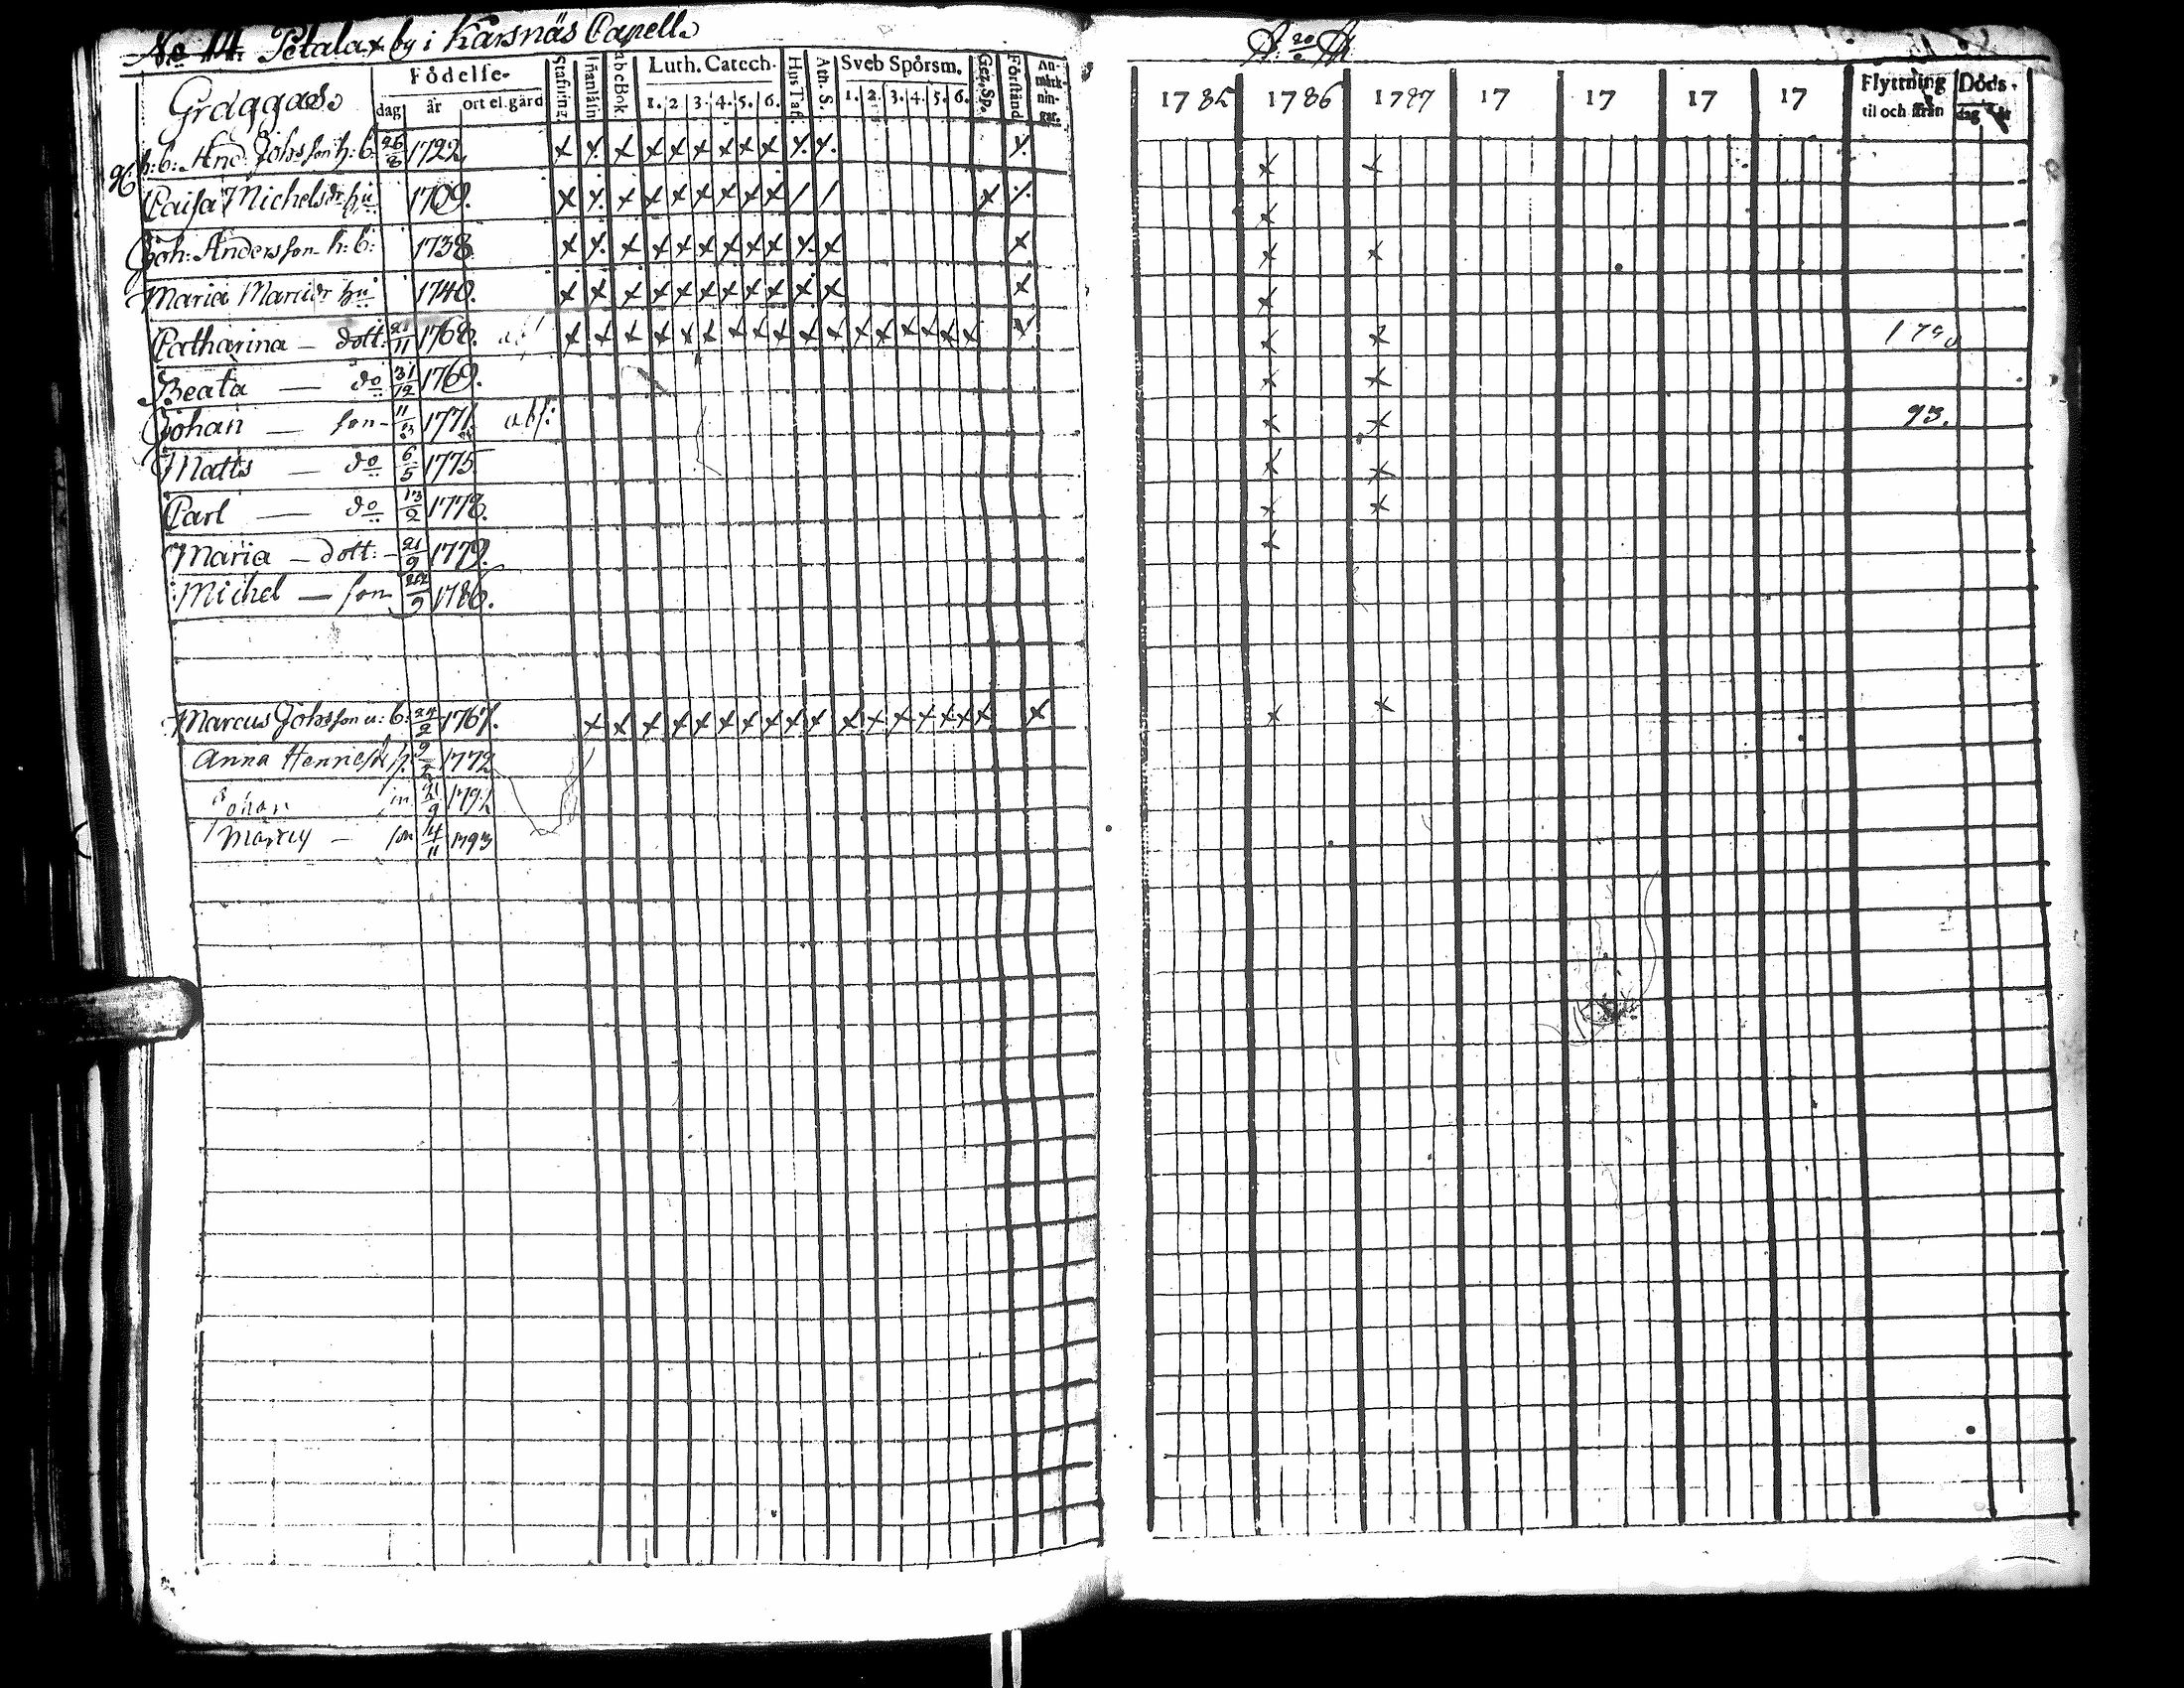 No 14. Petalax by i Karsnäs Capell.
Graggas.
Födelse-
dag år ort el. gård
Stafning Luth. Catech. Hus Tafl. Ath. S. Sveb Spörsm. Gez. Sp. Förstånd An-märk-nin-gar.
1. 2 3. 4. 5. 6. 1. 2. 3. 4. 5. 6.
h: b: And. Johsson h: b: 26/8 1722.
Caisa Michelsdr hu 1709.
Joh: Andersson h: b: 1738.
Maria Marcidr hu 1740.
Catharina — dott: 21/11 1768.
Beata — do 31/12 1769.
Johan — son 1771. abs:
Matts — do 6/5 1775
Carl — do 13/2 1778.
Maria — dott: 21/9 1779.
Michel — son 1786.
Marcus Johsson u: b: 24/2 1767.
Anna 1772
Johan 21/9 1792
son 14/11 1793
1785 1786 1787 17 17 17 17
Flyttning til och ifrån
Döds-
dag år
93.